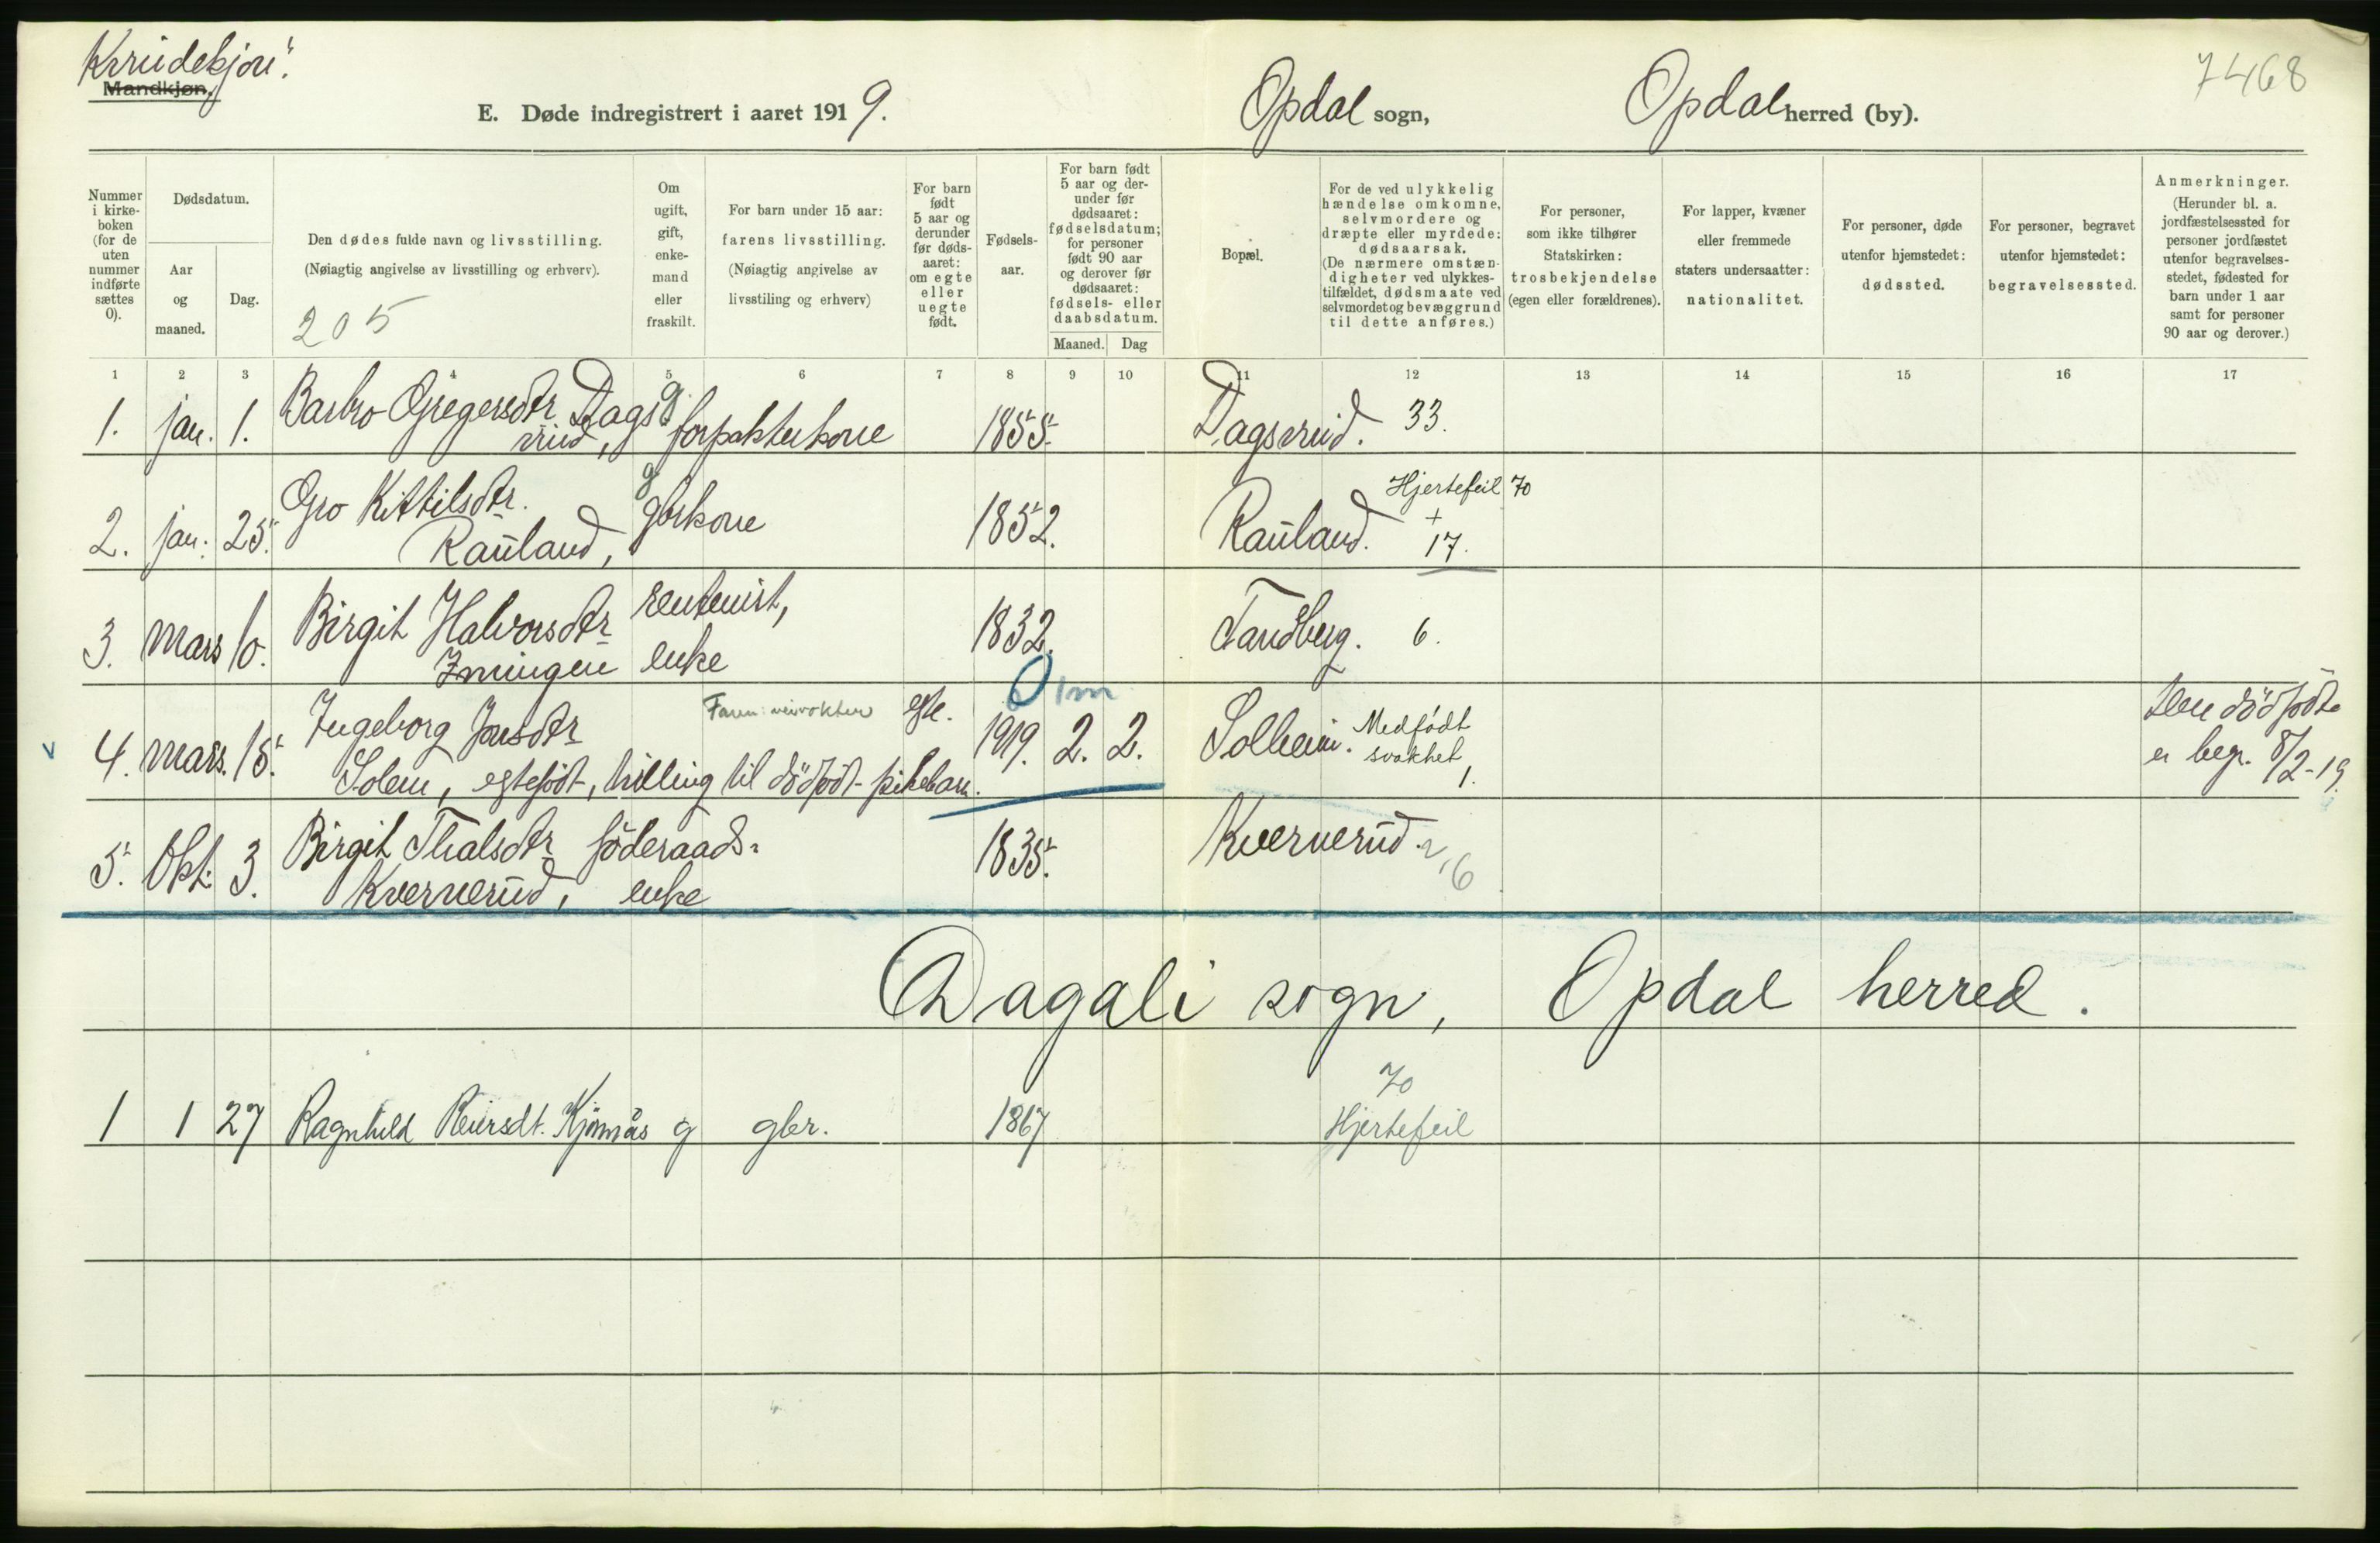 Kvindekjøn.
Mandkjøn.
7468
E. Døde indregistrert i aaret 1919.
Opdal sogn,
Opdal herred (by).
Nummer i kirke-boken (for de uten nummer indførte sættes 0).
Dødsdatum.
Aar og maaned.
Dag.
Den dødes fulde navn og livsstilling.
(Nøiagtig angivelse av livsstilling og erhverv).
205
Om ugift, gift, enke-mand eller fraskilt.
For barn under 15 aar: farens livsstilling.
(Nøiagtig angivelse av livsstiling og erhverv)
For barn født 5 aar og derunder før døds-aaret: om egte eller uegte født.
Fødsels-aar.
For barn født 5 aar og der-under før dødsaaret: fødselsdatum; for personer født 90 aar og derover før dødsaaret: fødsels- eller daabsdatum.
Maaned.
Dag
Bopæl.
For de ved ulykkelig hændelse omkomne, selvmordere og dræpte eller myrdede: dødsaarsak.
(De nærmere omstæn-digheter ved ulykkes-tilfældet, dødsmaate ved selvmordet og bevæggrund til dette anføres.)
For personer, som ikke tilhører Statskirken: trosbekjendelse (egen eller forældrenes).
For lapper, kvæner eller fremmede staters undersaatter: nationalitet.
For personer, døde utenfor hjemstedet: dødssted.
For personer, begravet utenfor hjemstedet: begravelsessted.
Anmerkninger.
(Herunder bl. a. jordfæstelsessted for personer jordfæstet utenfor begravelses-stedet, fødested for barn under 1 aar samt for personer 90 aar og derover.)
1 2 3 4 5 6 7 8 9 10 11 12 13 14 15 16 17
1. jan. 1. Barbro Gregersdtr Dags g. 1855. Dagsrud. 33.
rud, forpakterkone
Hjertefeil 70
2. jan. 25. Gro Kittilsdtr. g gbrkone 1852. Rauland. + 17.
Rauland,
3. Mars 10. Birgit Halvorsdtr rentenist, 1832. Tandberg. 6.
Imingen enke
0 1m
4. Mars. 15. Ingeborg Jonsdtr Faren: veivokter egte. 1919. 2. 2. Solheim. Medfödt svakhet 1. Den dödfödte
Solem, egtefödt, tvilling til dödfödt pikebarn. er begr. 8/2-19.
5. Okt. 3. Birgit Tholsdtr föderaads- 1835. Kvernerud. 26
Kvernerud, enke
Dagali sogn, Opdal herred.
70
1 1 27 Ragnhild Reiersdt. Kjönnås g gbr. 1867 Hjertefeil